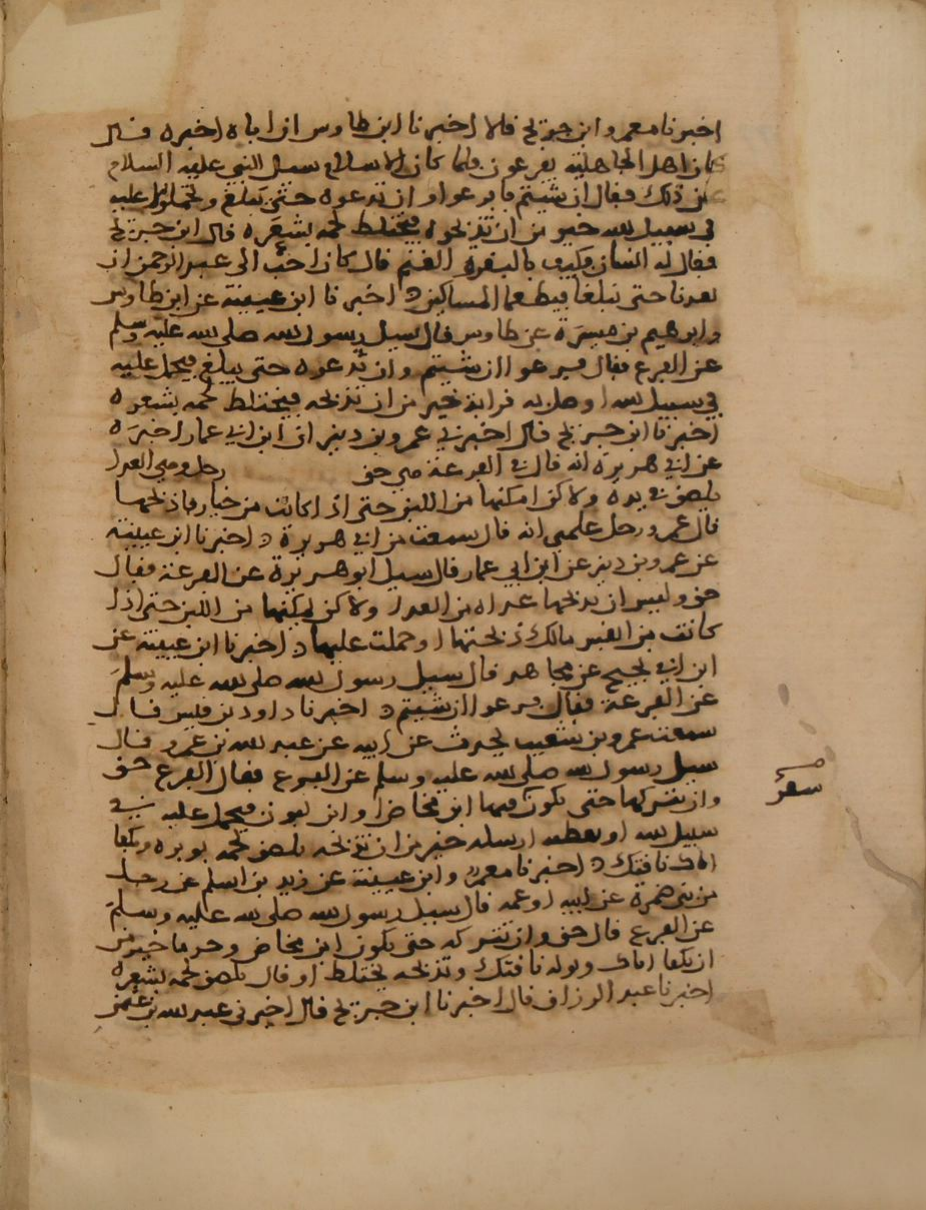 اخبرنا معمر وابن جريج قالا اخبرنا ابن طاوس ان اباه اخبره قال
كان اهل الجاهلية يفرعون فلما كان الاسلام سيل النبي عليه السلام
عن ذلك فقال ان شيتم فافرعوا وان تدعوه حتى يبلغ وتحملوا عليه
في سبيل الله خير من ان تذبحوه فيختلط لحمه بشعره قال ابن جريج
فقال له انسان فكيف بالبقرة الغنم قال كان احب الى عبد الرحمن ان
يعدنا حتى تبلغا فيطعما المساكين اخبرنا ابن عيينة عن ابن طاوس
وابرهيم بن ميسرة عن طاوس قال سيل رسول الله صلى الله عليه وسلم
عن الفرع فقال فرعوا ان شيتم وان تدعوه حتى يبلغ فيحمل عليه
في سبيل الله او صل به قرابة خير من ان تذبحه فيختلط لحمه بشعره
اخبرنا ابن جريج قال اخبرني عمرو بن دينر ان ابن ابي عمار اخبره
عن ابي هريرة انه قال في الفرعة هي حق رجل وهي العدا
يلصق في يده ولاكن امكنها من اللبن حتى اذا كانت من خيار فاذبحها
قال عمرو رجل علمني انه قال سمعت من ابي هريرة اخبرنا ابن عيينة
عن عمرو بن دينر عن ابن ابي عمار قال سيل ابو هريرة عن الفرعة فقال
حق وليس ان يذبحها عداه من العدا ولاكن يمكنها من اللبن حتى اذا
كانت من انفس مالك ذبحتها او حملت عليها اخبرنا ابن عيينة عن
ابن ابي نجيح عن مجاهد قال سيل رسول الله صلى الله عليه وسلم
عن الفرعة فقال فرعوا ان شيتم اخبرنا داود بن قيس قال
سمعت عمرو بن شعيب يحدث عن ابيه عن عبد الله بن عمرو قال
سيل رسول الله صلى الله عليه وسلم عن الفرع فقال الفرع حق
وان تتركها حتى يكون فيها ابن مخاض او ابن لبون فيحمل عليه في
سبيل الله او يعطيه ارملة خير من ان تذبحه يلصق لحمه بوبره وتكفا
اناك ناقتك اخبرنا معمر وابن عيينة عن زيد بن اسلم عن رجل
من بني ضمرة عن ابيه او عمه قال سيل رسول الله صلى الله عليه وسلم
عن الفرع قال حق وان تتركه حتى يكون ابن مخاض خير من
ان تكفا اناك وتوله ناقتك وتذبحه يختلط او قال يلصق لحمه بشعره
اخبرنا عبد الرزاق قال اخبرنا ابن جريج قال اخبرني عبد الله بن عثمن